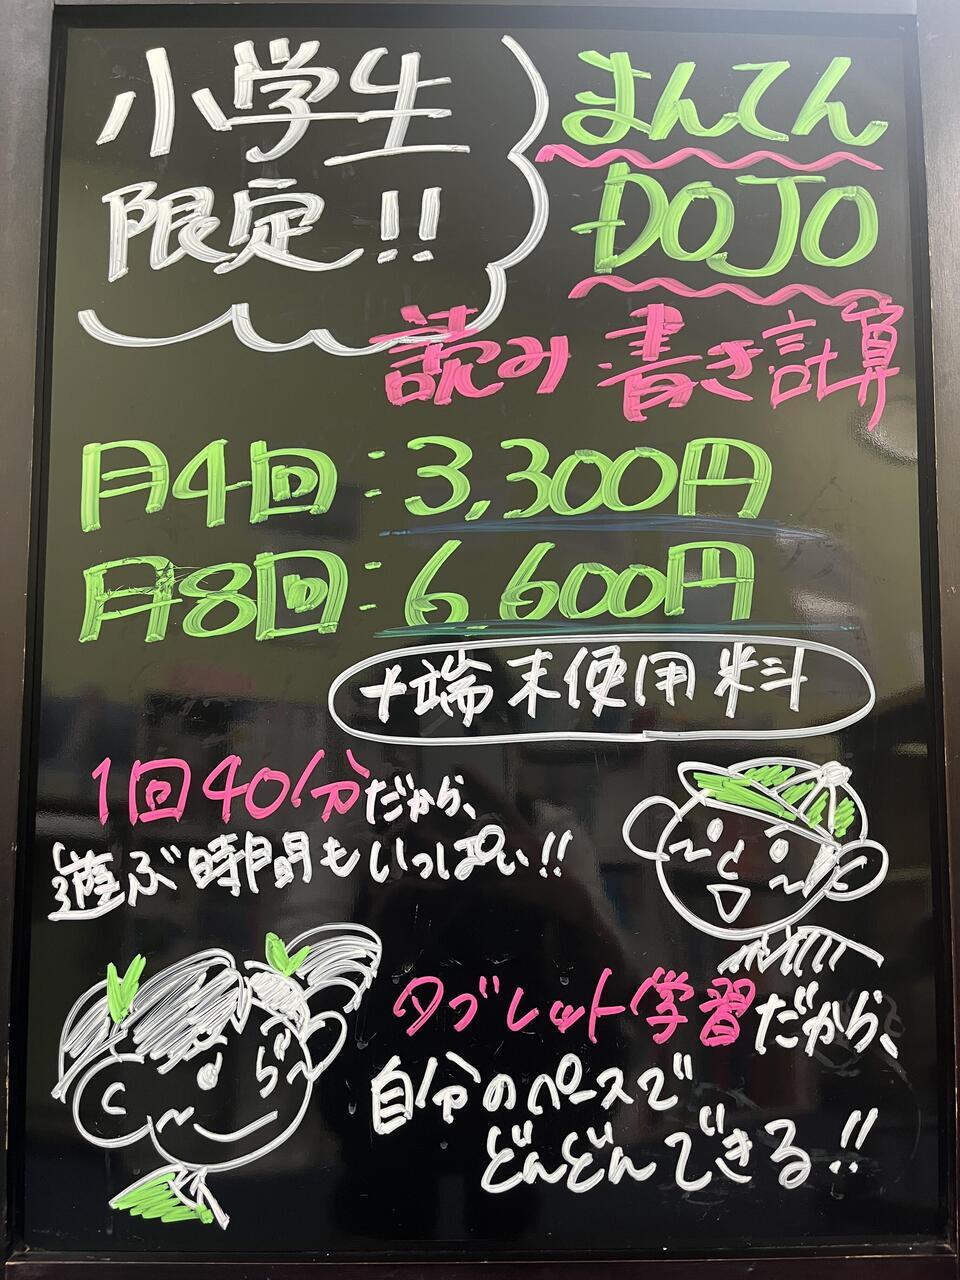 小学生
限定!!
まんてん
DOJO
読み書き計算
月4回：3,300円
月8回：6,600円
+端末使用料
1回40分だから、
遊ぶ時間もいっぱい!!
タブレット学習だから、
自分のペースで
どんどんできる!!